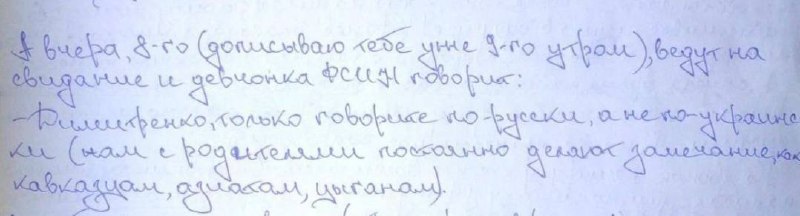 А вчера, 8-го (дописываю тебе уже 9-го утром), ведут на
свидание и девчонка ФСИН говорит:
- Димитренко, только говорите по-русски, а не по-украинс-
ки (нам с родителями постоянно делают замечание, как
кавказцам, азиатам, цыганам).